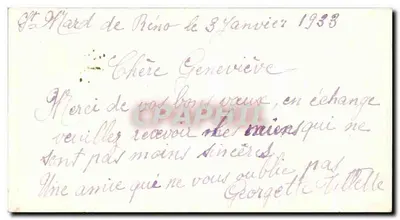 St Mard de Réno le 3 Janvier 1933
Chère Geneviève
Merci de vos bons vœux, en échange
veuillez recevoir les miens qui ne
sont pas moins sincères
Une amie qui ne vous oublie pas
Georgette
CPAPHIL